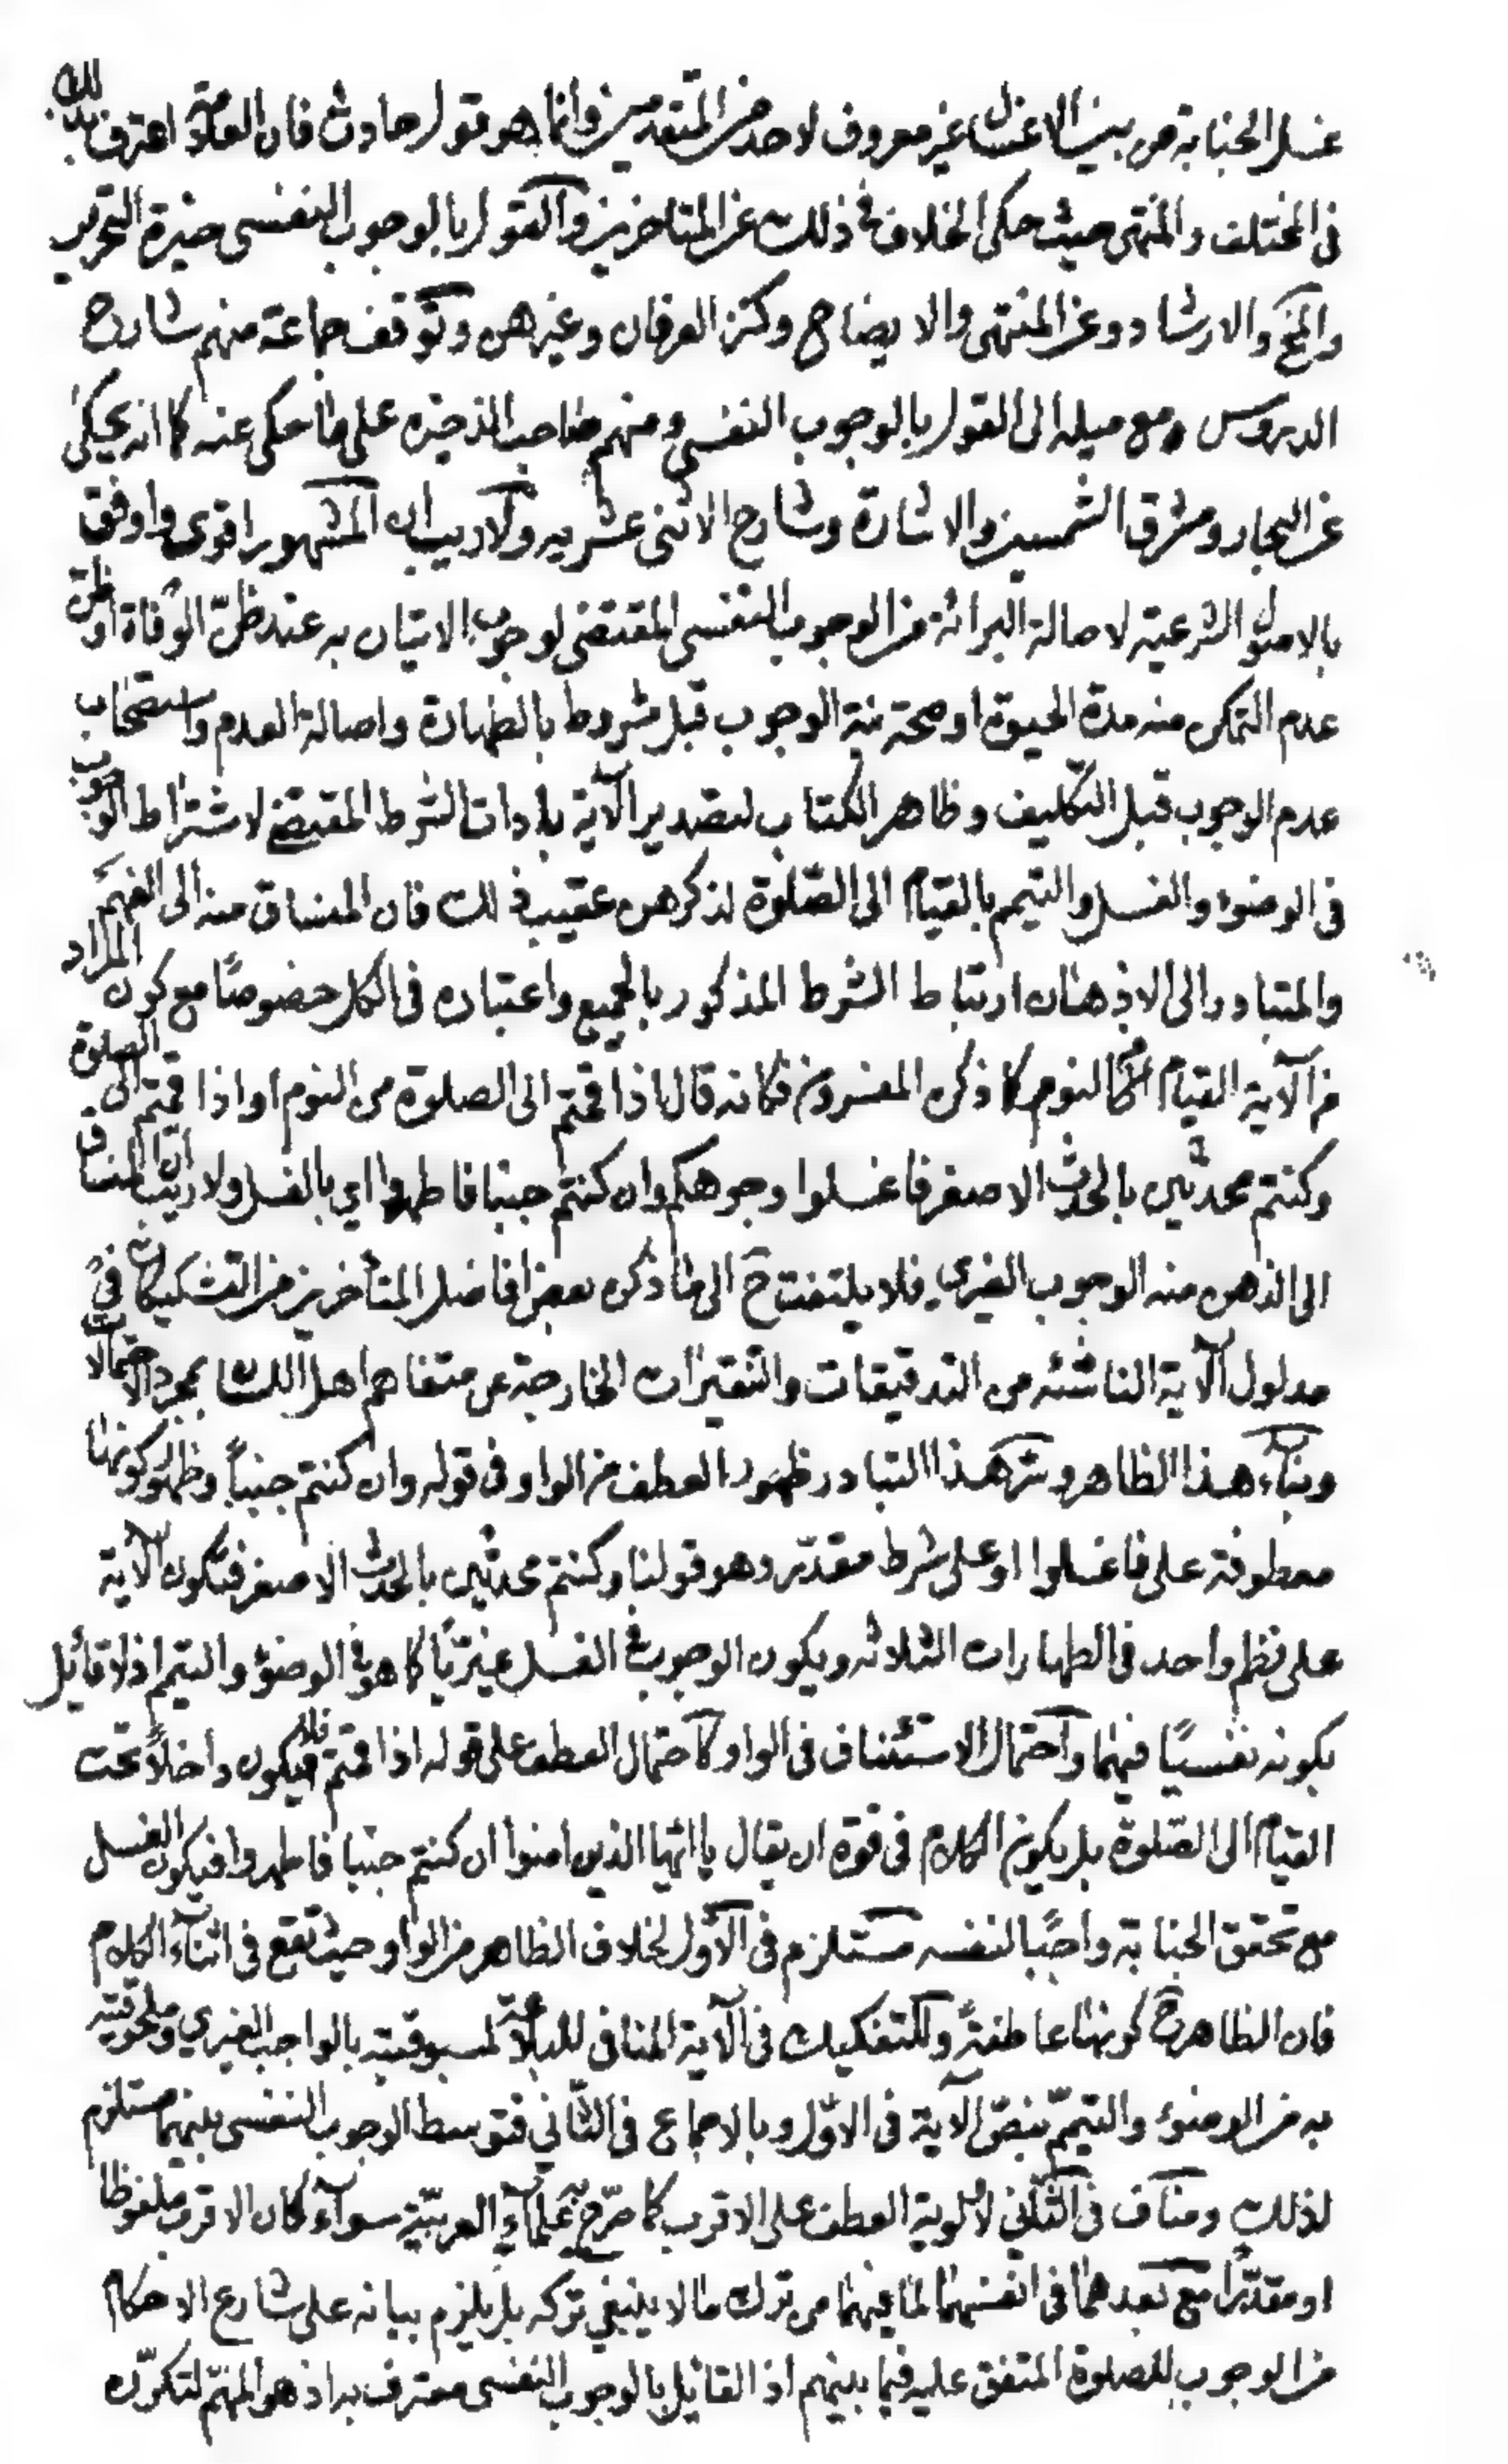 غسل الجنابة من بين الاغسال غير معروف لاحد من المتقدمين وانما هو قول حادث فان العلامة اعترف بذلك
في المختلف والمنتهى حيث حكى الخلاف في ذلك عن المتاخرين والقول بالوجوب النفسي خيرة التحرير
والمنتهى والارشاد وعن المنتهى والايضاح وكنز العرفان وغيرهن وتوقف جماعة منهم شارح
الدروس مع ميله الى القول بالوجوب النفسي ومنهم صاحب الذخيرة على ما حكى عنه كما انه يحكى
عن البحار ومشرق الشمسين والاشارة وشارح الاثنى عشريه ولا ريب ان المشهور اقوى واوفق
بالاصول الشرعية لاصالة البرائة من الوجوب النفسي المقتضى لوجوب الاتيان به عند ظنّ الوفاة او ظنّ
عدم التمكن منه مدة الحيوة او صحة نية الوجوب قبل مشروط بالطهارة واصالة العدم واستصحاب
عدم الوجوب قبل التكليف وظاهر الكتاب لتصدير الآية باداة الشرط المقتضى لاشتراط الوجوب
في الوضوء والغسل والتيمم بالقيام الى الصّلوة لذكرهن عقيب ذلك فان المنساق منه الى الفهم
والمتبادر الى الاذهان ارتباط الشرط المذكور بالجميع واعتباره في الكل خصوصًا مع كون المراد
من الآية القيام من النوم كما ذكره المفسرون فكانه قال اذا قمتم الى الصلوة من النوم او اذا قمتم الى الصلوة
وكنتم محدثين بالحدث الاصغر فاغسلوا وجوهكم وان كنتم جنبا فاطهروا اي بالغسل ولا ريب ان المنساق
الى الذهن منه الوجوب الغيري فلا يلتفت ح الى ما ذكره بعض افاضل المتأخرين من التشكيكات في
مدلول الآية الناشئه من التدقيقات والتقيرات الخارجة عن متفاهم اهل اللسان بمجرد الاحتمالات
وبناء هذا الظاهر وسر هذا التبادر ظهور العطف من الواو في قوله وان كنتم جنباً وظهور كونها
معطوفة على فاغسلوا او على شرط مقدّر وهو قولنا وكنتم محدثين بالحدث الاصغر فتكون الآية
على نظم واحد في الطهارات الثلاثه ويكون الوجوب في الغسل غيريًا كما هو في الوضوء والتيمم اذ لا قائل
بكونه نفسيًا فيهما واحتمال الاستئناف في الواو كاحتمال العطف على قوله اذا قمتم فلا يكون داخلاً تحت
القيام الى الصّلوة بل يكون الكلام في قوة ان يقال يا ايّها الذين امنوا ان كنتم جنبا فاطهروا فيكون الغسل
مع تحقق الجنابة واجبًا لنفسه مستلزم في الاول لخلاف الظاهر من الواو حيث تقع في اثناء الكلام
فان الظاهر ح كونها عاطفةً وللتفكيك في الآية المنافي للبلاغة لمسبوقيته بالواجب الغيري وملحوقيته
به من الوضوء والتيمّم بنصّ الآية في الاوّل وبالاجماع في الثّاني فتوسط الوجوب النفسي بينهما مستلزم
لذلك ومناف في الثّاني لاولوية العطف على الاقرب كما صرّح به علماء العربيّة سواء كان الاقرب ملفوظا
او مقدّرًا مع بعدهما في انفسهما لما فيهما من ترك ما لا ينبغي تركه بل يلزم بيانه على شارع الاحكام
من الوجوب للصلوة المتفق عليه فيما بينهم اذ القائل بالوجوب النفسي معترف به اذ هو المهمّ لتكرّره